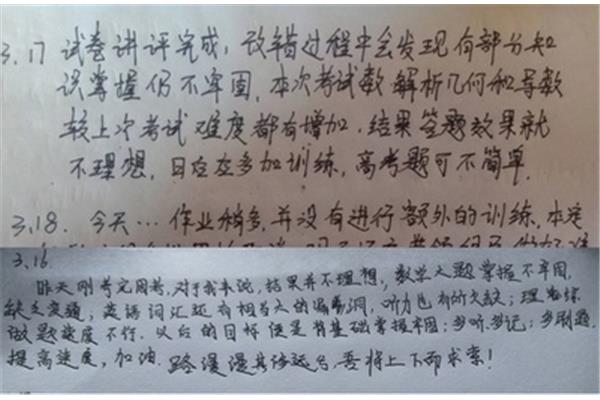 3.17 试卷讲评完成，改错过程中会发现有部分知
识掌握仍不牢固，本次考试数 解析几何和导数
较上次考试难度都有增加，结果答题效果就
不理想，日后应多加训练，高考题可不简单.
3.18. 今天… 作业稍多，并没有进行额外的训练，本
3.16
昨天刚考完周考，对于我来说，结果并不理想，数学大题掌握不牢固，
缺乏变通；英语词汇还有相当大的漏洞，听力也有所欠缺；理综
做题速度不行，以后的目标便是将基础掌握牢固；多听多记；多刷题，
提高速度，加油. 路漫漫其修远兮，吾将上下而求索！